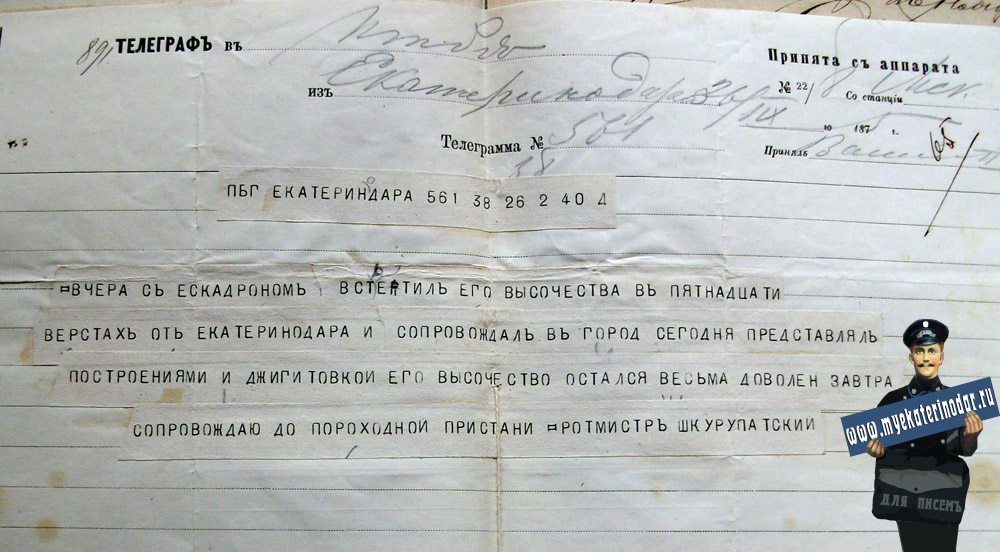 891 ТЕЛЕГРАФЪ въ
изъ Екатеринодара 26/IX
Телеграмма № 561
38
Принята съ аппарата
№ 22/8 Со станціи
187 г.
Принялъ
ПБГ ЕКАТЕРИНДАРА 561 38 26 2 40 Д
¤ВЧЕРА СЪ ЕСКАДРОНОМЪ ВСТЕРТИЛЬ ЕГО ВЫСОЧЕСТВА ВЪ ПЯТНАДЦАТИ
ВЕРСТАХЬ ОТЬ ЕКАТЕРИНОДАРА И СОПРОВОЖДАЛЬ ВЪ ГОРОД СЕГОДНЯ ПРЕДСТАВЛЯЛЬ
ПОСТРОЕНИЯМИ И ДЖИГИТОВКОЙ ЕГО ВЫСОЧЕСТВО ОСТАЛСЯ ВЕСЬМА ДОВОЛЕН ЗАВТРА
СОПРОВОЖДАЮ ДО ПОРОХОДНОЙ ПРИСТАНИ ¤РОТМИСТРЬ ШКУРУПАТСКИЙ
www.myekaterinodar.ru
ДЛЯ ПИСЕМЪ